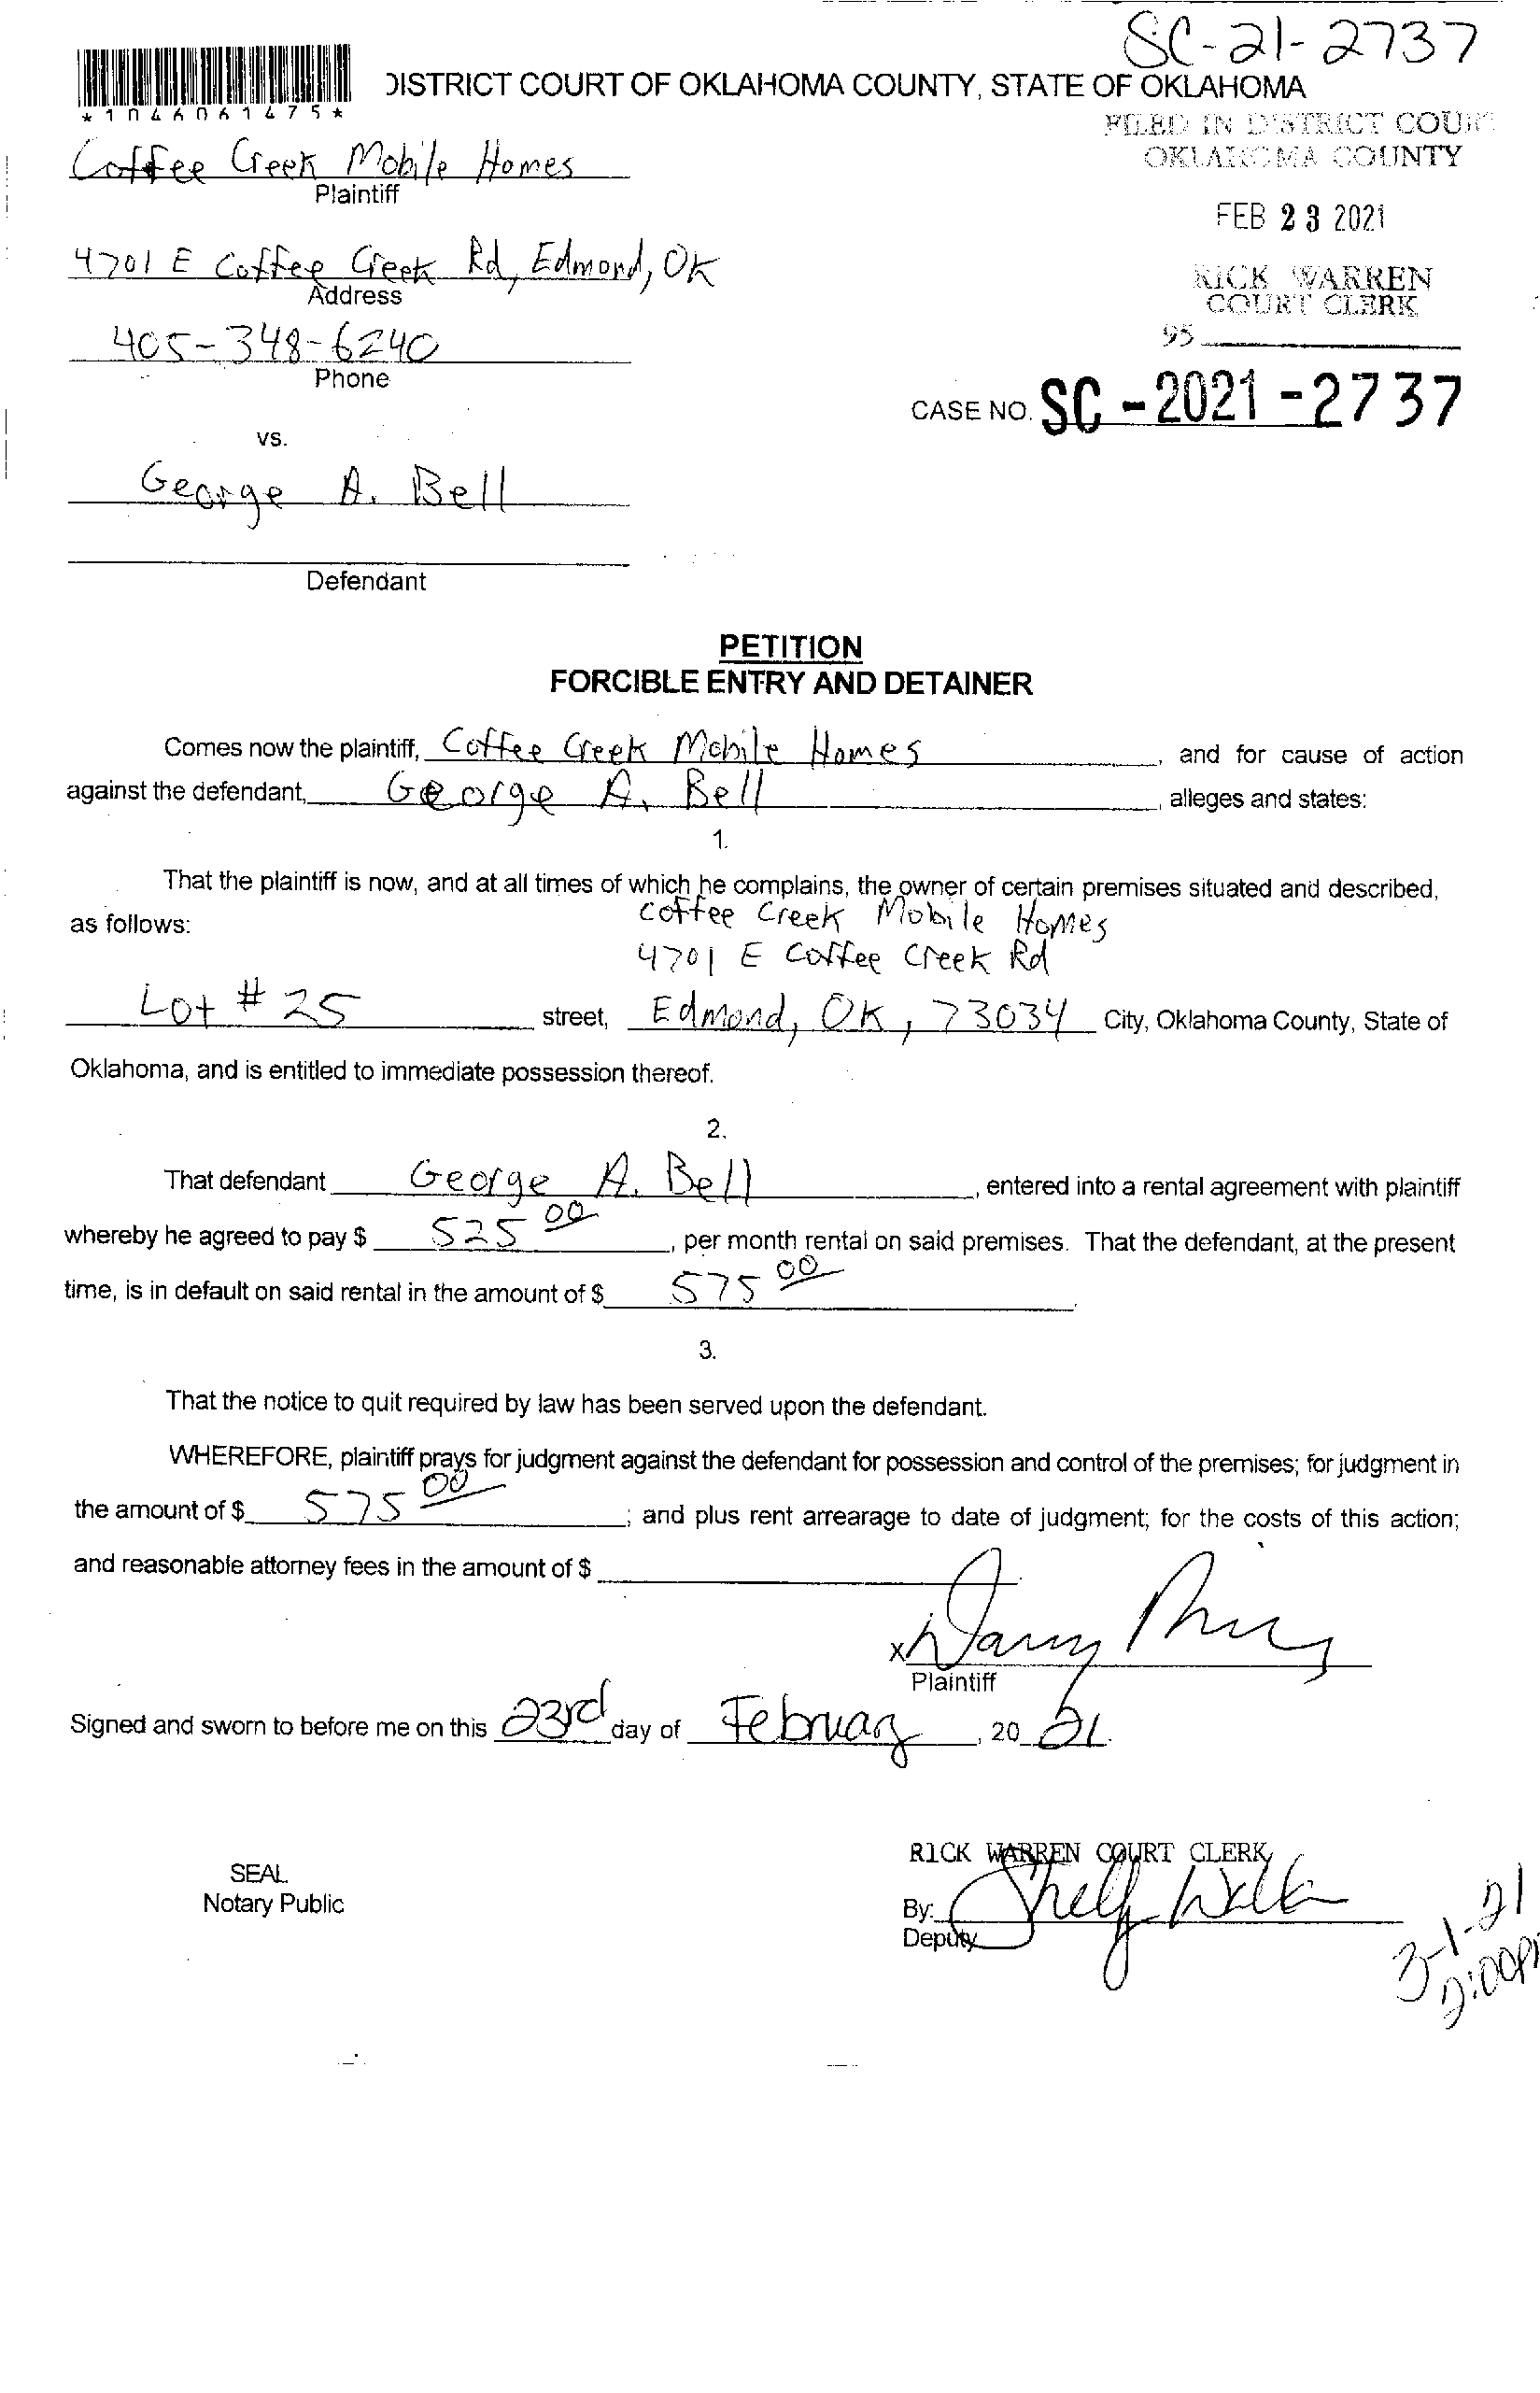 SC-21-2737
DISTRICT COURT OF OKLAHOMA COUNTY, STATE OF OKLAHOMA
*1046061475*
FILED IN DISTRICT COURT
OKLAHOMA COUNTY
Coffee Creek Mobile Homes
Plaintiff
FEB 23 2021
4701 E Coffee Creek Rd, Edmond, OK
Address
RICK WARREN
COURT CLERK
95
405-348-6240
Phone
CASE NO. SC-2021-2737
vs.
George A. Bell
Defendant
PETITION
FORCIBLE ENTRY AND DETAINER
Comes now the plaintiff, Coffee Creek Mobile Homes, and for cause of action
against the defendant, George A. Bell, alleges and states:
1.
That the plaintiff is now, and at all times of which he complains, the owner of certain premises situated and described,
as follows:
Coffee Creek Mobile Homes
4701 E Coffee Creek Rd
Lot # 25 street, Edmond, OK, 73034 City, Oklahoma County, State of
Oklahoma, and is entitled to immediate possession thereof.
2.
That defendant George A. Bell, entered into a rental agreement with plaintiff
whereby he agreed to pay $ 525 00, per month rental on said premises. That the defendant, at the present
time, is in default on said rental in the amount of $ 575 00.
3.
That the notice to quit required by law has been served upon the defendant.
WHEREFORE, plaintiff prays for judgment against the defendant for possession and control of the premises; for judgment in
the amount of $ 575 00; and plus rent arrearage to date of judgment; for the costs of this action;
and reasonable attorney fees in the amount of $
x
Plaintiff
Signed and sworn to before me on this 23rd day of February, 2021.
RICK WARREN COURT CLERK
SEAL
Notary Public
By:
Deputy
3-1-21
2:00P